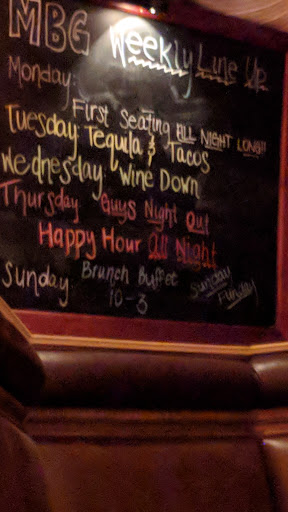 MBG Weekly Line Up
Monday:
First Seating ALL NIGHT LONG!!
Tuesday: Tequila & Tacos
Wednesday: Wine Down
Thursday Guys Night Out
Happy Hour All Night
Sunday Brunch Buffet
10-3
Sunday
Funday